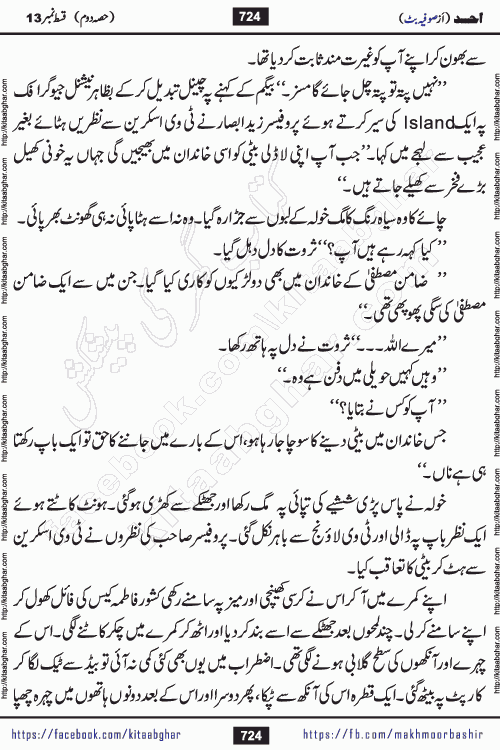 احمد (از صوفیہ بٹ) 724 (حصہ دوم) قسط نمبر 13
سے بھون کر اپنے آپ کو غیرت مند ثابت کر دیا تھا۔
’’نہیں پتہ تو پتہ چل جائے گا مسز۔‘‘ بیگم کے کہنے پہ چینل تبدیل کر کے بظاہر نیشنل جیوگرافک
پہ ایک Island کی سیر کرتے ہوئے پروفیسر زید ابصار نے ٹی وی اسکرین سے نظریں ہٹائے بغیر
عجیب سے لہجے میں کہا۔ ’’جب آپ اپنی لاڈلی بیٹی کو اسی خاندان میں بھیجیں گی جہاں یہ خونی کھیل
بڑے فخر سے کھیلے جاتے ہیں۔‘‘
چائے کا وہ سیاہ رنگ کا مگ خولہ کے لبوں سے جڑا رہ گیا۔ وہ نہ اسے ہٹا پائی نہ ہی گھونٹ بھر پائی۔
’’کیا کہہ رہے ہیں آپ؟‘‘ ثروت کا دل دہل گیا۔
’’ضامن مصطفیٰ کے خاندان میں بھی دو لڑکیوں کو کاری کیا گیا۔ جن میں سے ایک ضامن
مصطفیٰ کی سگی پھوپھی تھی۔‘‘
’’میرے اللہ۔۔۔‘‘ ثروت نے دل پہ ہاتھ رکھا۔
’’وہیں کہیں حویلی میں دفن ہے وہ۔‘‘
’’آپ کو کس نے بتایا؟‘‘
جس خاندان میں بیٹی دینے کا سوچا جا رہا ہو، اس کے بارے میں جاننے کا حق تو ایک باپ رکھتا
ہی ہے ناں۔‘‘
خولہ نے پاس پڑی شیشے کی تپائی پہ مگ رکھا اور جھٹکے سے کھڑی ہو گئی۔ ہونٹ کاٹتے ہوئے
ایک نظر باپ پہ ڈالی اور ٹی وی لاؤنج سے باہر نکل گئی۔ پروفیسر صاحب کی نظروں نے ٹی وی اسکرین
سے ہٹ کر بیٹی کا تعاقب کیا۔
اپنے کمرے میں آ کر اس نے کرسی کھینچی اور میز پہ سامنے رکھی کشور فاطمہ کیس کی فائل کھول کر
اپنے سامنے کر لی۔ چند لمحوں بعد جھٹکے سے اسے بند کر دیا اور اٹھ کر کمرے میں چکر کاٹنے لگی۔ اس کے
چہرے اور آنکھوں کی سطح گلابی ہونے لگی تھی۔ اضطراب میں یوں بھی کئی کمی نہ آئی تو بیڈ سے ٹیک لگا کر
کارپٹ پہ بیٹھ گئی۔ ایک قطرہ اس کی آنکھ سے ٹپکا، پھر دوسرا اور اس کے بعد دونوں ہاتھوں میں چہرہ چھپا
https://facebook.com/kitaabghar 724 https://fb.com/makhmoorbashir
http://kitaabghar.com